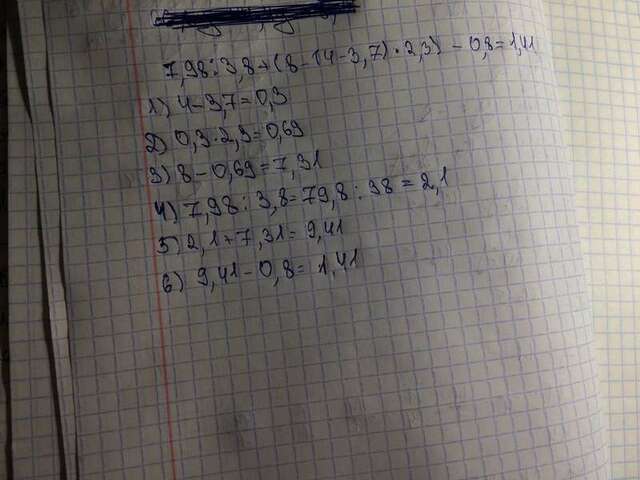 7,98:3,8+(8-(4-3,7)·2,3)-0,8=1,41
1) 4-3,7=0,3
2) 0,3·2,3=0,69
3) 8-0,69=7,31
4) 7,98:3,8=79,8:38=2,1
5) 2,1+7,31=9,41
6) 9,41-0,8=1,41